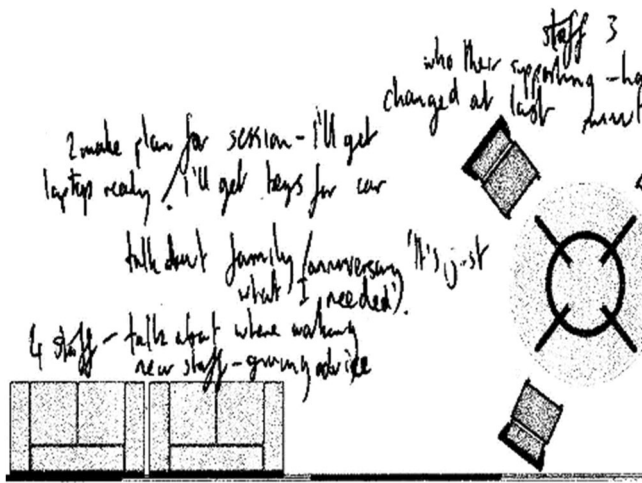 staff 3
who their supporting - ha
changed at last minut
2 make plan for session - I'll get
laptop ready. I'll get keys for car
talk about family (anniversary 'It's just
what I needed').
4 staff - talk about where walking
new staff - giving advice